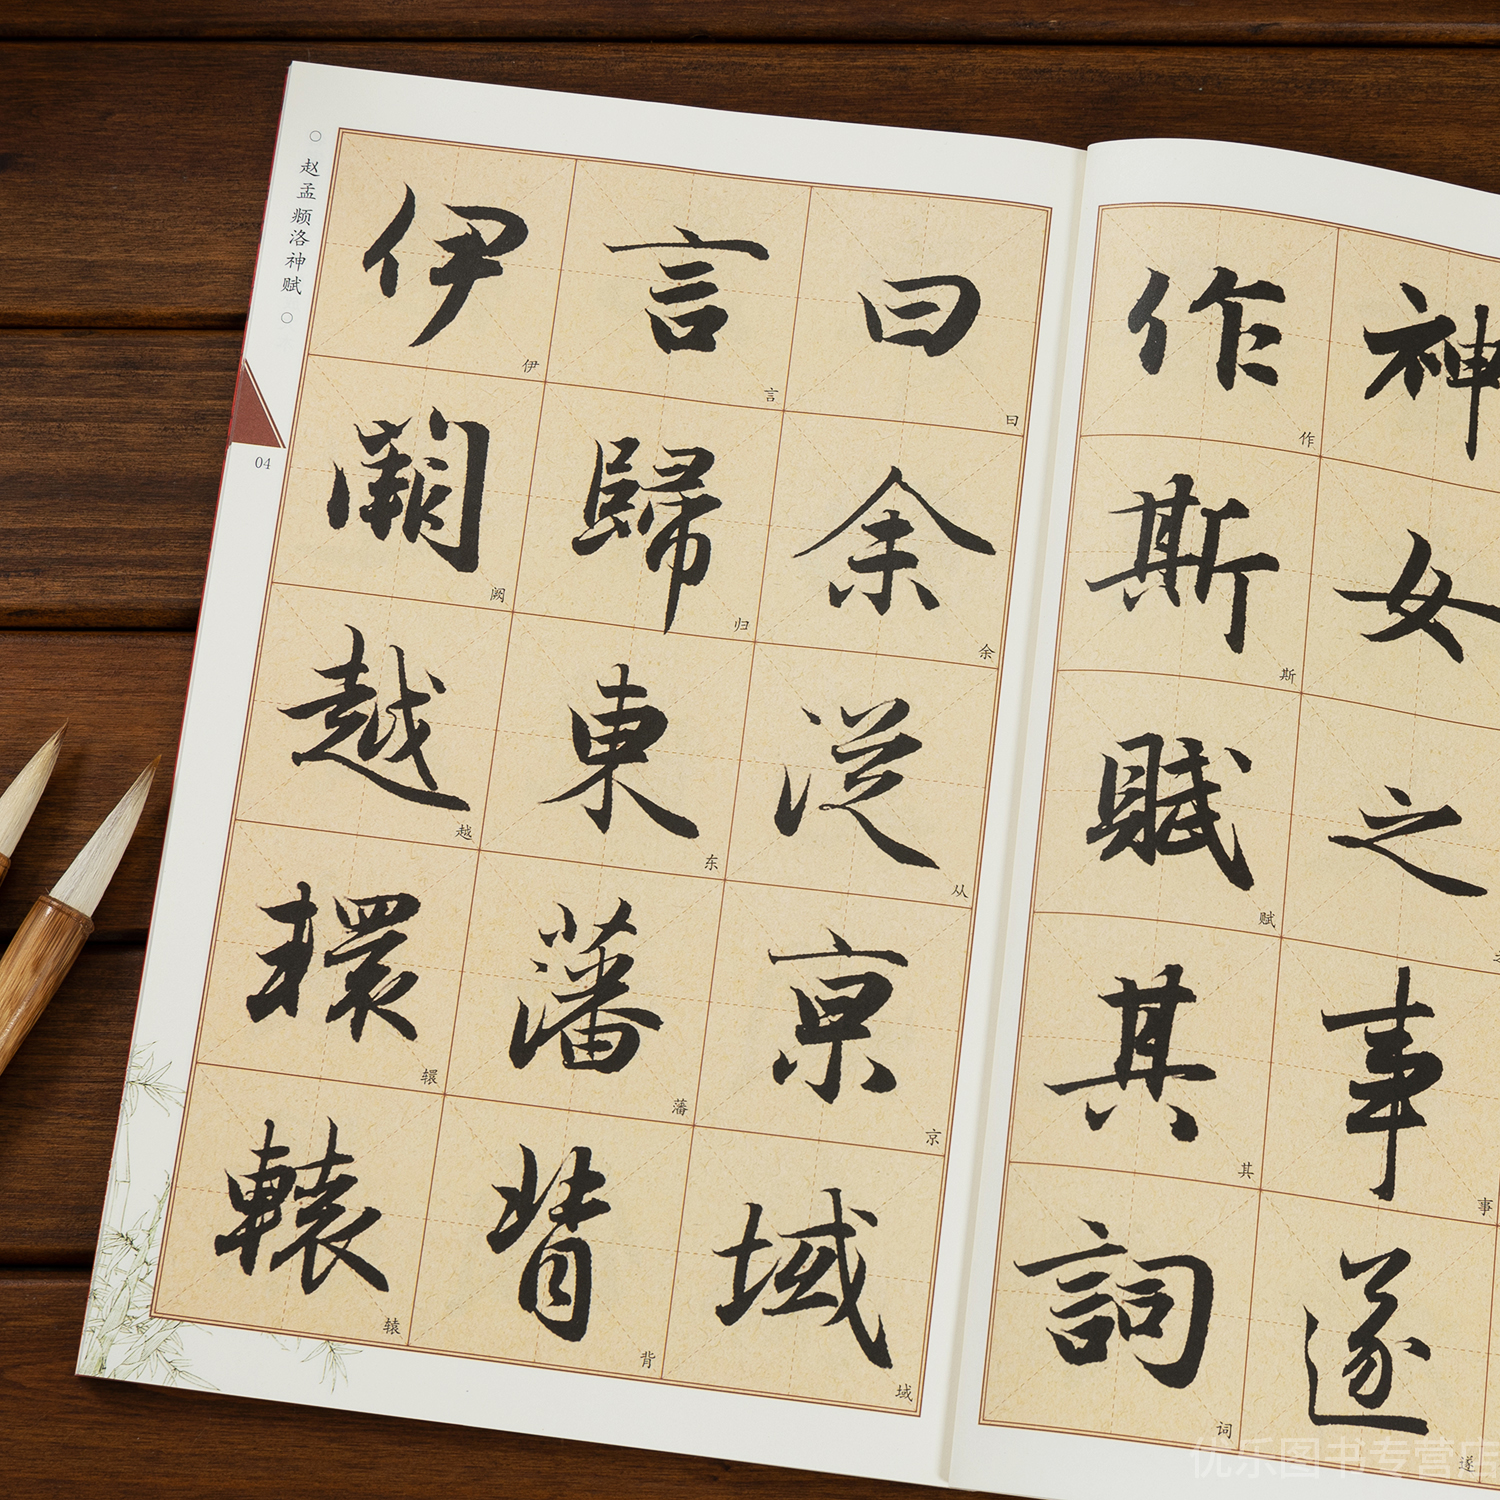 赵孟頫洛神赋
04
神女之事遂
作斯賦其詞
曰余從京域
言歸東藩背
伊闕越轘轅
作
斯
赋
其
词
事
遂
曰
余
从
京
域
言
归
东
藩
背
伊
阙
越
轘
辕
优乐图书专营店